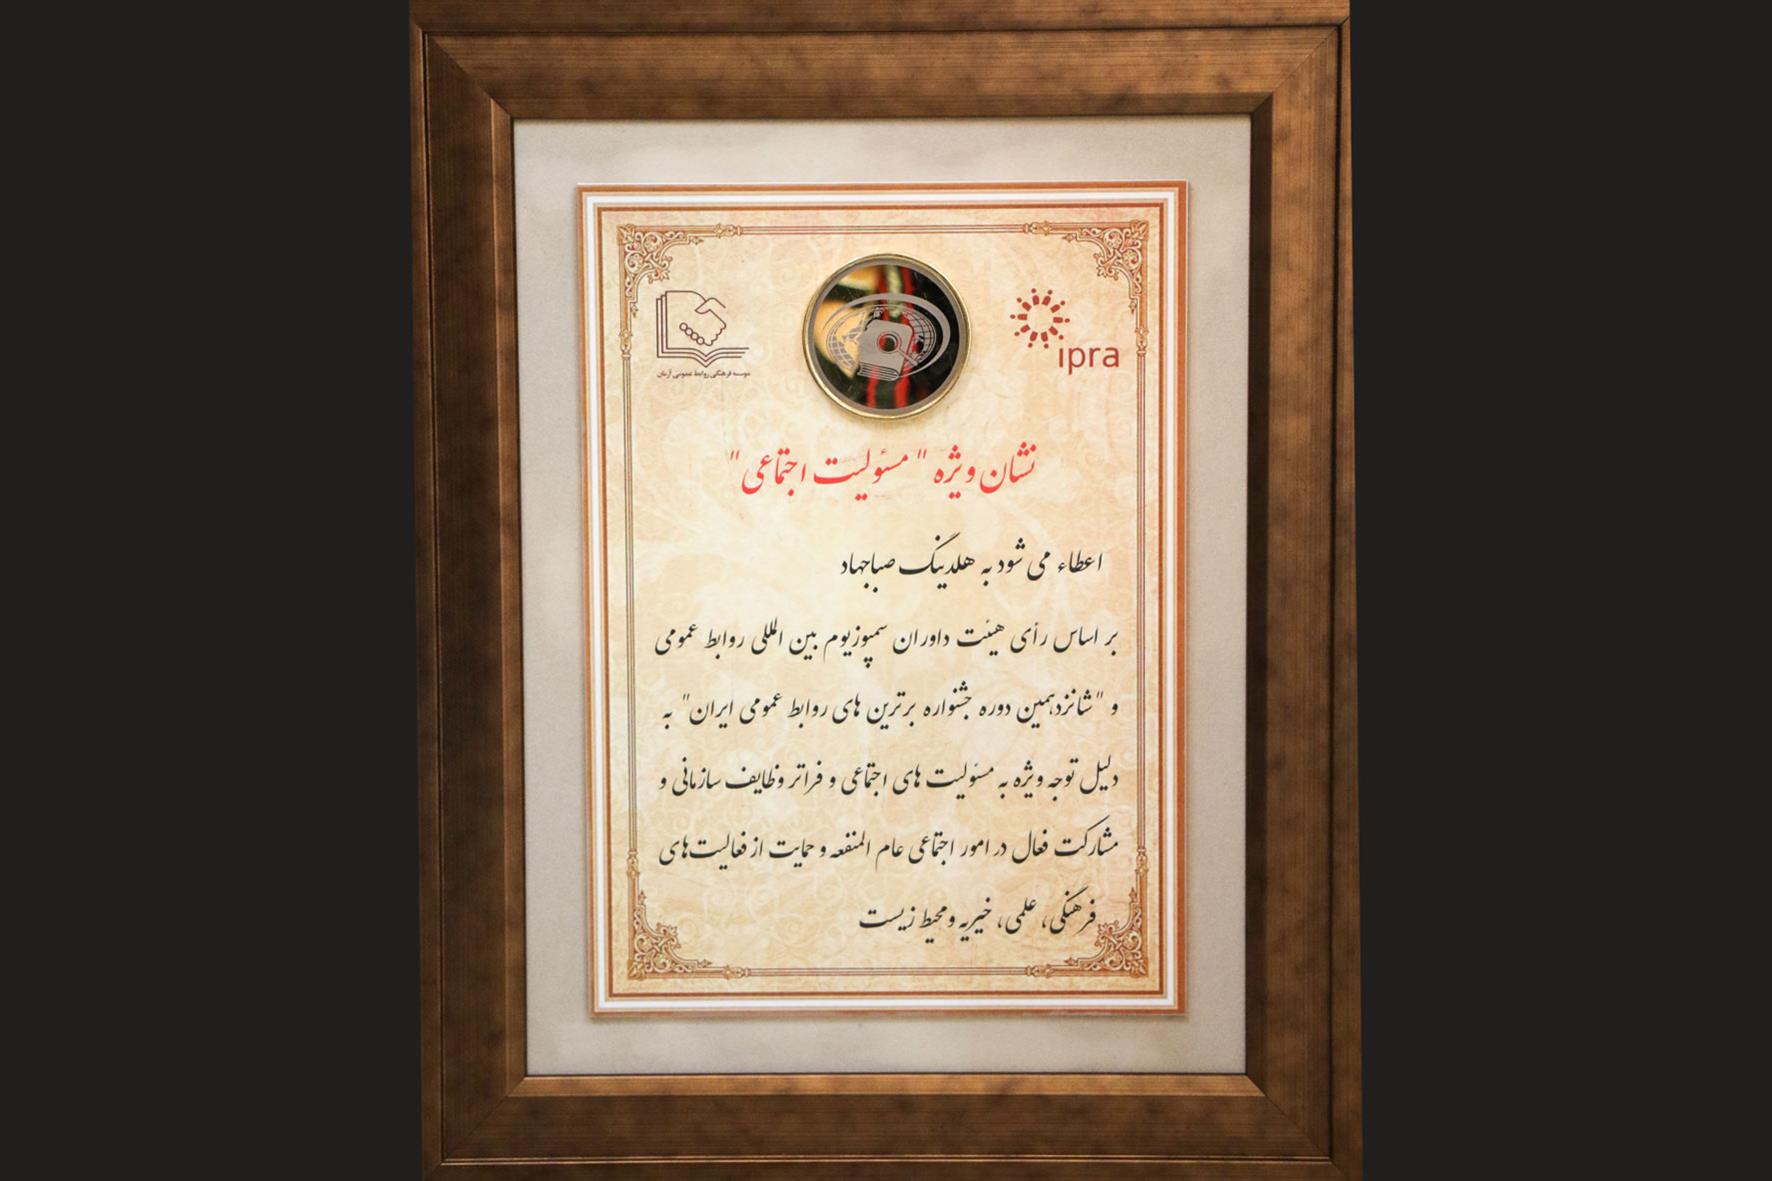 موسسه فرهنگی روابط عمومی آرمان
ipra
نشان ویژه " مسئولیت اجتماعی "
اعطاء می شود به هلدینگ صباجهاد
بر اساس رأی هیئت داوران سمپوزیوم بین المللی روابط عمومی
و "شانزدهمین دوره جشنواره برترین های روابط عمومی ایران" به
دلیل توجه ویژه به مسئولیت های اجتماعی و فراتر وظایف سازمانی و
مشارکت فعال در امور اجتماعی عام المنفعه و حمایت از فعالیت‌های
فرهنگی، علمی، خیریه و محیط زیست